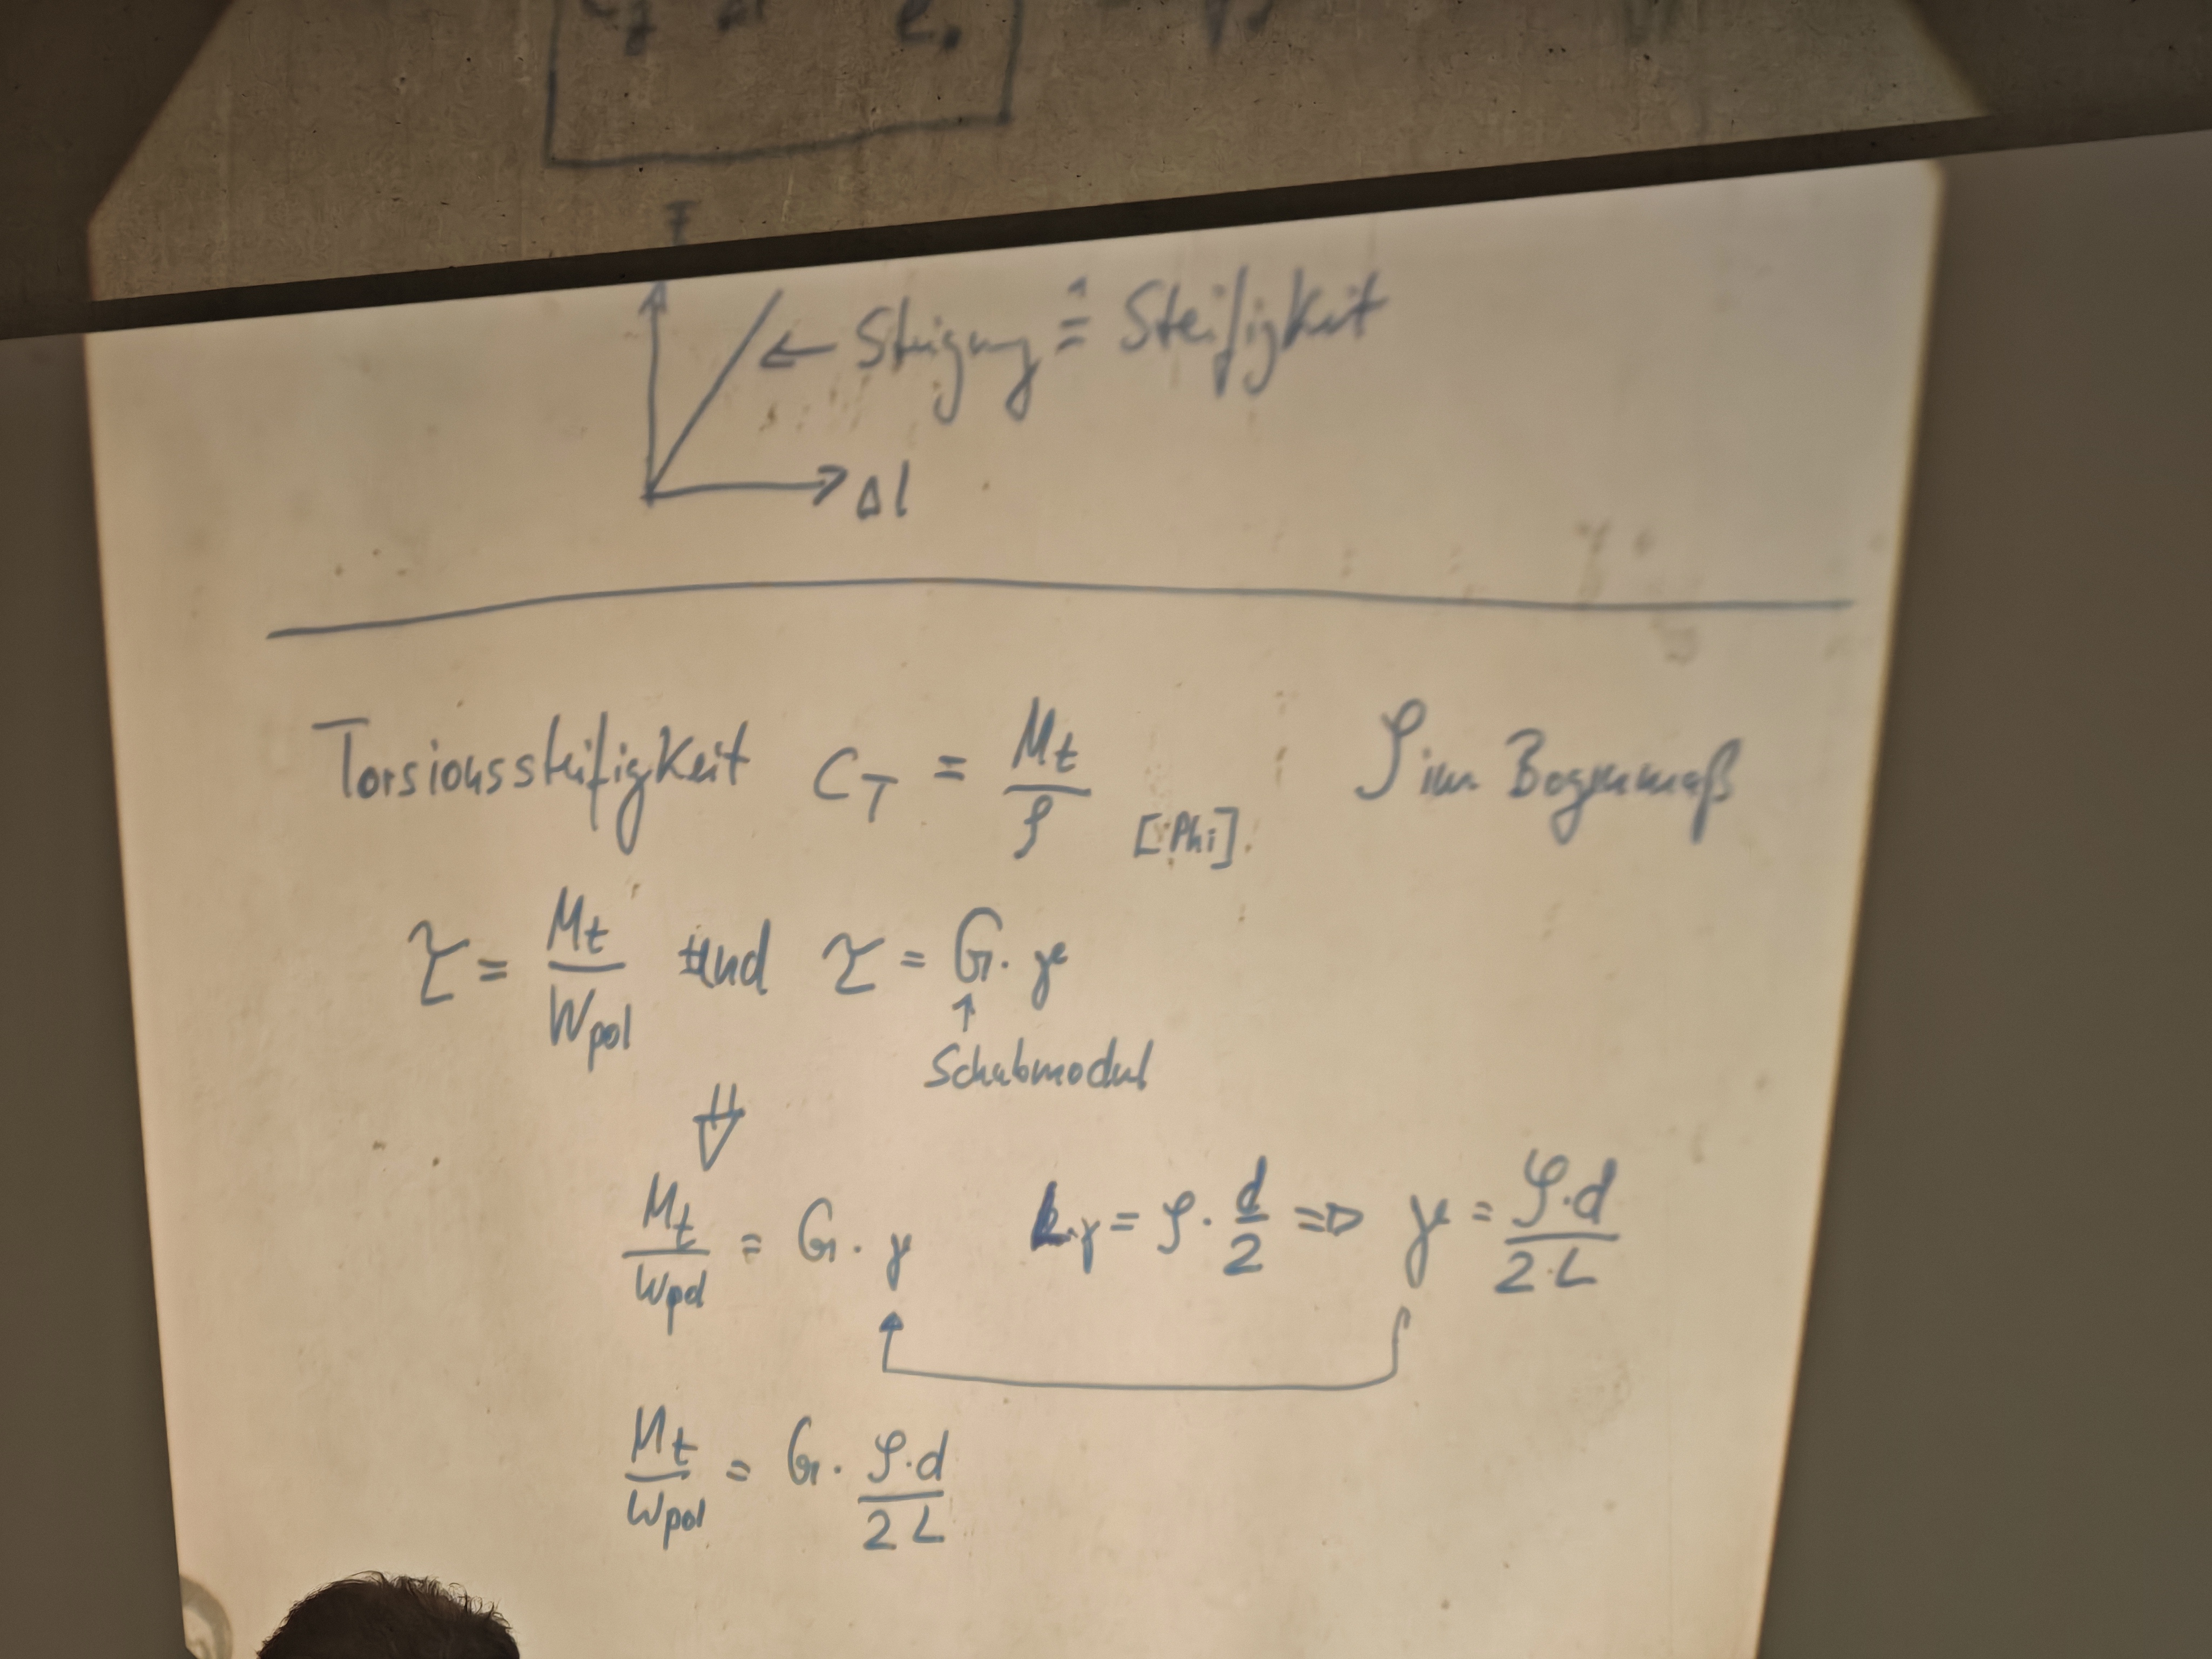 F
← Steigung ≙ Steifigkeit
Δl
Torsionssteifigkeit C_T = M_t / φ [Phi] φ im Bogenmaß
τ = M_t / W_pol und τ = G · γ
↑
Schubmodul
⇓
M_t / W_pol = G · γ L·γ = φ · d/2 ⇒ γ = φ·d / 2·L
M_t / W_pol = G · φ·d / 2 L